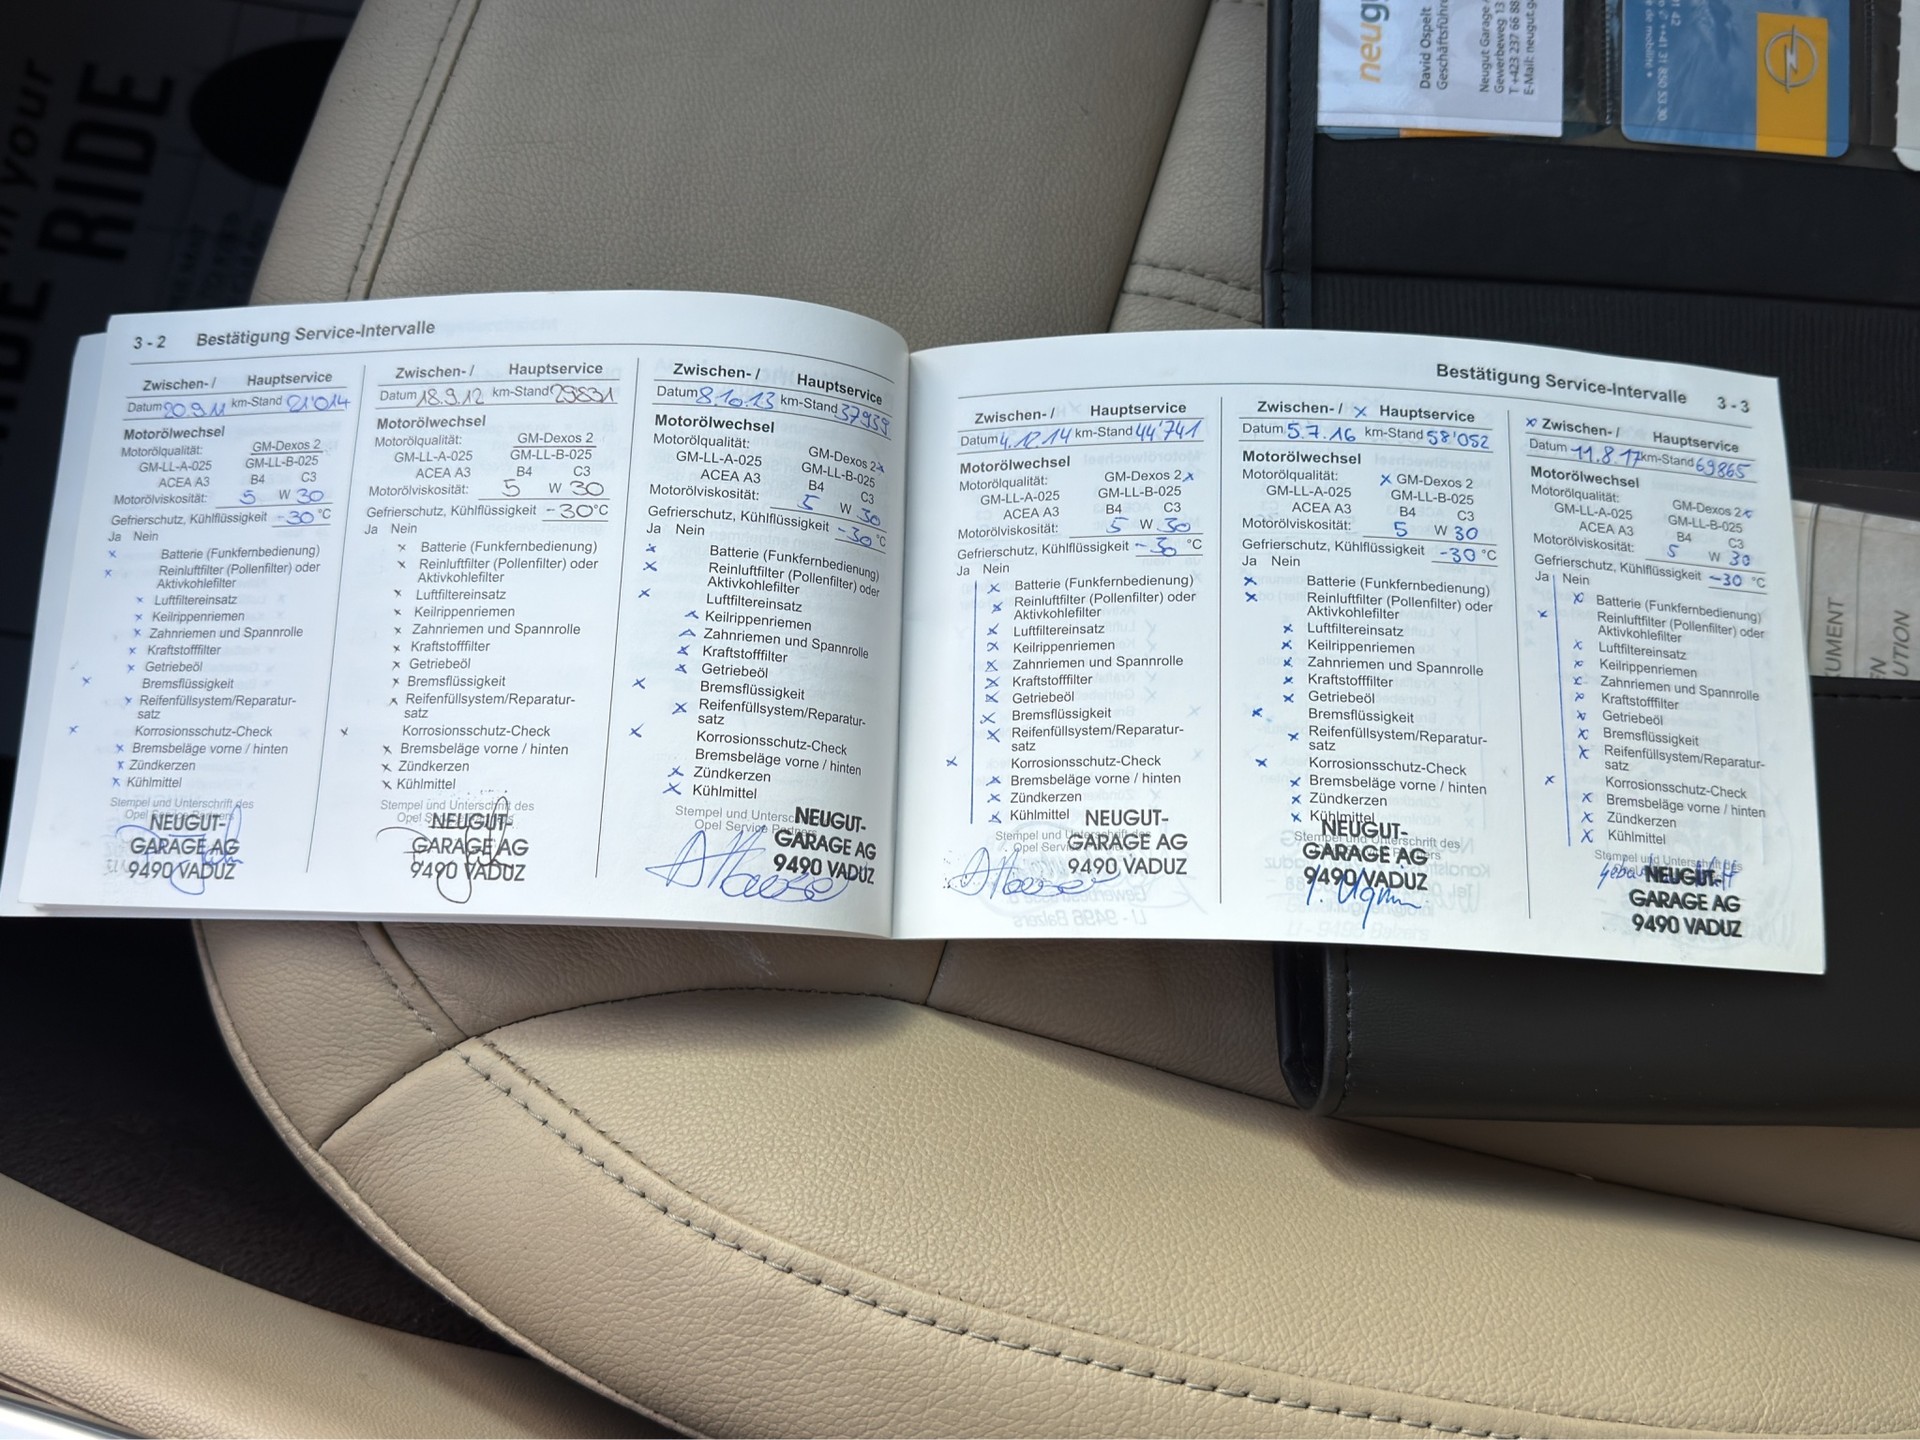 in your
RIDE
neug
David Ospelt
Geschäftsführe
Neugut Garage
Gewerbeweg 13
T +423 237 66 88
E-Mail: neugut.ga
42
+41 31 850 53 30
de mobilité
UMENT
UTION
3 - 2 Bestätigung Service-Intervalle
Zwischen- / Hauptservice
Datum 20.9.11 km-Stand 21'014
Motorölwechsel
Motorölqualität: GM-Dexos 2
GM-LL-A-025 GM-LL-B-025
ACEA A3 B4 C3
Motorölviskosität: 5 W 30
Gefrierschutz, Kühlflüssigkeit -30 °C
Ja Nein
x Batterie (Funkfernbedienung)
x Reinluftfilter (Pollenfilter) oder
Aktivkohlefilter
x Luftfiltereinsatz
x Keilrippenriemen
x Zahnriemen und Spannrolle
x Kraftstofffilter
x Getriebeöl
x Bremsflüssigkeit
x Reifenfüllsystem/Reparatur-
satz
x Korrosionsschutz-Check
x Bremsbeläge vorne / hinten
x Zündkerzen
x Kühlmittel
Stempel und Unterschrift des
Opel Service Partners
NEUGUT-
GARAGE AG
9490 VADUZ
Zwischen- / Hauptservice
Datum 18.9.12 km-Stand 29831
Motorölwechsel
Motorölqualität: GM-Dexos 2
GM-LL-A-025 GM-LL-B-025
ACEA A3 B4 C3
Motorölviskosität: 5 W 30
Gefrierschutz, Kühlflüssigkeit -30 °C
Ja Nein
x Batterie (Funkfernbedienung)
x Reinluftfilter (Pollenfilter) oder
Aktivkohlefilter
x Luftfiltereinsatz
x Keilrippenriemen
x Zahnriemen und Spannrolle
x Kraftstofffilter
x Getriebeöl
x Bremsflüssigkeit
x Reifenfüllsystem/Reparatur-
satz
x Korrosionsschutz-Check
x Bremsbeläge vorne / hinten
x Zündkerzen
x Kühlmittel
Stempel und Unterschrift des
NEUGUT-
GARAGE AG
9490 VADUZ
Zwischen- / Hauptservice
Datum 8.10.13 km-Stand 37939
Motorölwechsel
Motorölqualität: GM-Dexos 2 x
GM-LL-A-025 GM-LL-B-025
ACEA A3 B4 C3
Motorölviskosität: 5 W 30
Gefrierschutz, Kühlflüssigkeit -30 °C
Ja Nein
x Batterie (Funkfernbedienung)
x Reinluftfilter (Pollenfilter) oder
Aktivkohlefilter
x Luftfiltereinsatz
x Keilrippenriemen
x Zahnriemen und Spannrolle
x Kraftstofffilter
x Getriebeöl
x Bremsflüssigkeit
x Reifenfüllsystem/Reparatur-
satz
x Korrosionsschutz-Check
Bremsbeläge vorne / hinten
x Zündkerzen
x Kühlmittel
Stempel und Unterschrift
Opel Service Partners
NEUGUT-
GARAGE AG
9490 VADUZ
Bestätigung Service-Intervalle 3 - 3
Zwischen- / Hauptservice
Datum 4.12.14 km-Stand 44'741
Motorölwechsel
Motorölqualität: GM-Dexos 2 x
GM-LL-A-025 GM-LL-B-025
ACEA A3 B4 C3
Motorölviskosität: 5 W 30
Gefrierschutz, Kühlflüssigkeit -30 °C
Ja Nein
x Batterie (Funkfernbedienung)
x Reinluftfilter (Pollenfilter) oder
Aktivkohlefilter
x Luftfiltereinsatz
x Keilrippenriemen
x Zahnriemen und Spannrolle
x Kraftstofffilter
x Getriebeöl
x Bremsflüssigkeit
x Reifenfüllsystem/Reparatur-
satz
x Korrosionsschutz-Check
x Bremsbeläge vorne / hinten
x Zündkerzen
x Kühlmittel
Stempel und Unterschrift des
Opel Service
NEUGUT-
GARAGE AG
9490 VADUZ
Zwischen- / x Hauptservice
Datum 5.7.16 km-Stand 58'052
Motorölwechsel
Motorölqualität: x GM-Dexos 2
GM-LL-A-025 GM-LL-B-025
ACEA A3 B4 C3
Motorölviskosität: 5 W 30
Gefrierschutz, Kühlflüssigkeit -30 °C
Ja Nein
x Batterie (Funkfernbedienung)
x Reinluftfilter (Pollenfilter) oder
Aktivkohlefilter
x Luftfiltereinsatz
x Keilrippenriemen
x Zahnriemen und Spannrolle
x Kraftstofffilter
x Getriebeöl
x Bremsflüssigkeit
x Reifenfüllsystem/Reparatur-
satz
x Korrosionsschutz-Check
x Bremsbeläge vorne / hinten
x Zündkerzen
x Kühlmittel
Stempel und Unterschrift des
NEUGUT-
GARAGE AG
9490 VADUZ
x Zwischen- / Hauptservice
Datum 11.8.17 km-Stand 69865
Motorölwechsel
Motorölqualität: GM-Dexos 2 x
GM-LL-A-025 GM-LL-B-025
ACEA A3 B4 C3
Motorölviskosität: 5 W 30
Gefrierschutz, Kühlflüssigkeit -30 °C
Ja Nein
x Batterie (Funkfernbedienung)
x Reinluftfilter (Pollenfilter) oder
Aktivkohlefilter
x Luftfiltereinsatz
x Keilrippenriemen
x Zahnriemen und Spannrolle
x Kraftstofffilter
x Getriebeöl
x Bremsflüssigkeit
x Reifenfüllsystem/Reparatur-
satz
x Korrosionsschutz-Check
x Bremsbeläge vorne / hinten
x Zündkerzen
x Kühlmittel
Stempel und Unterschrift des
NEUGUT-
GARAGE AG
9490 VADUZ